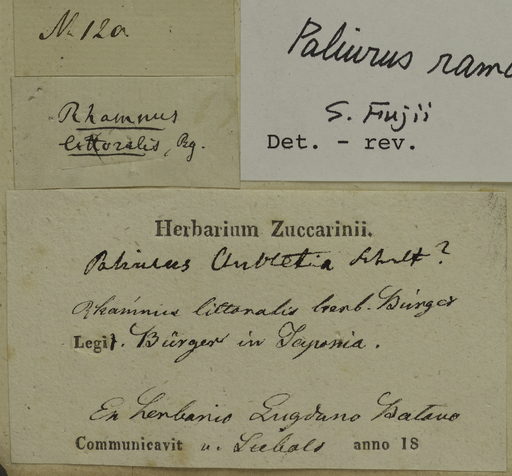 N. 12a
Paliurus ramo
S. Fujii
Det. - rev.
Rhamnus
littoralis, Bg.
Herbarium Zuccarinii.
Paliurus Aubletia Schult?
Rhamnus littoralis herb. Bürger
Legit. Bürger in Japonia.
Ex herbario Lugduno Batavo
Communicavit v. Siebold anno 18